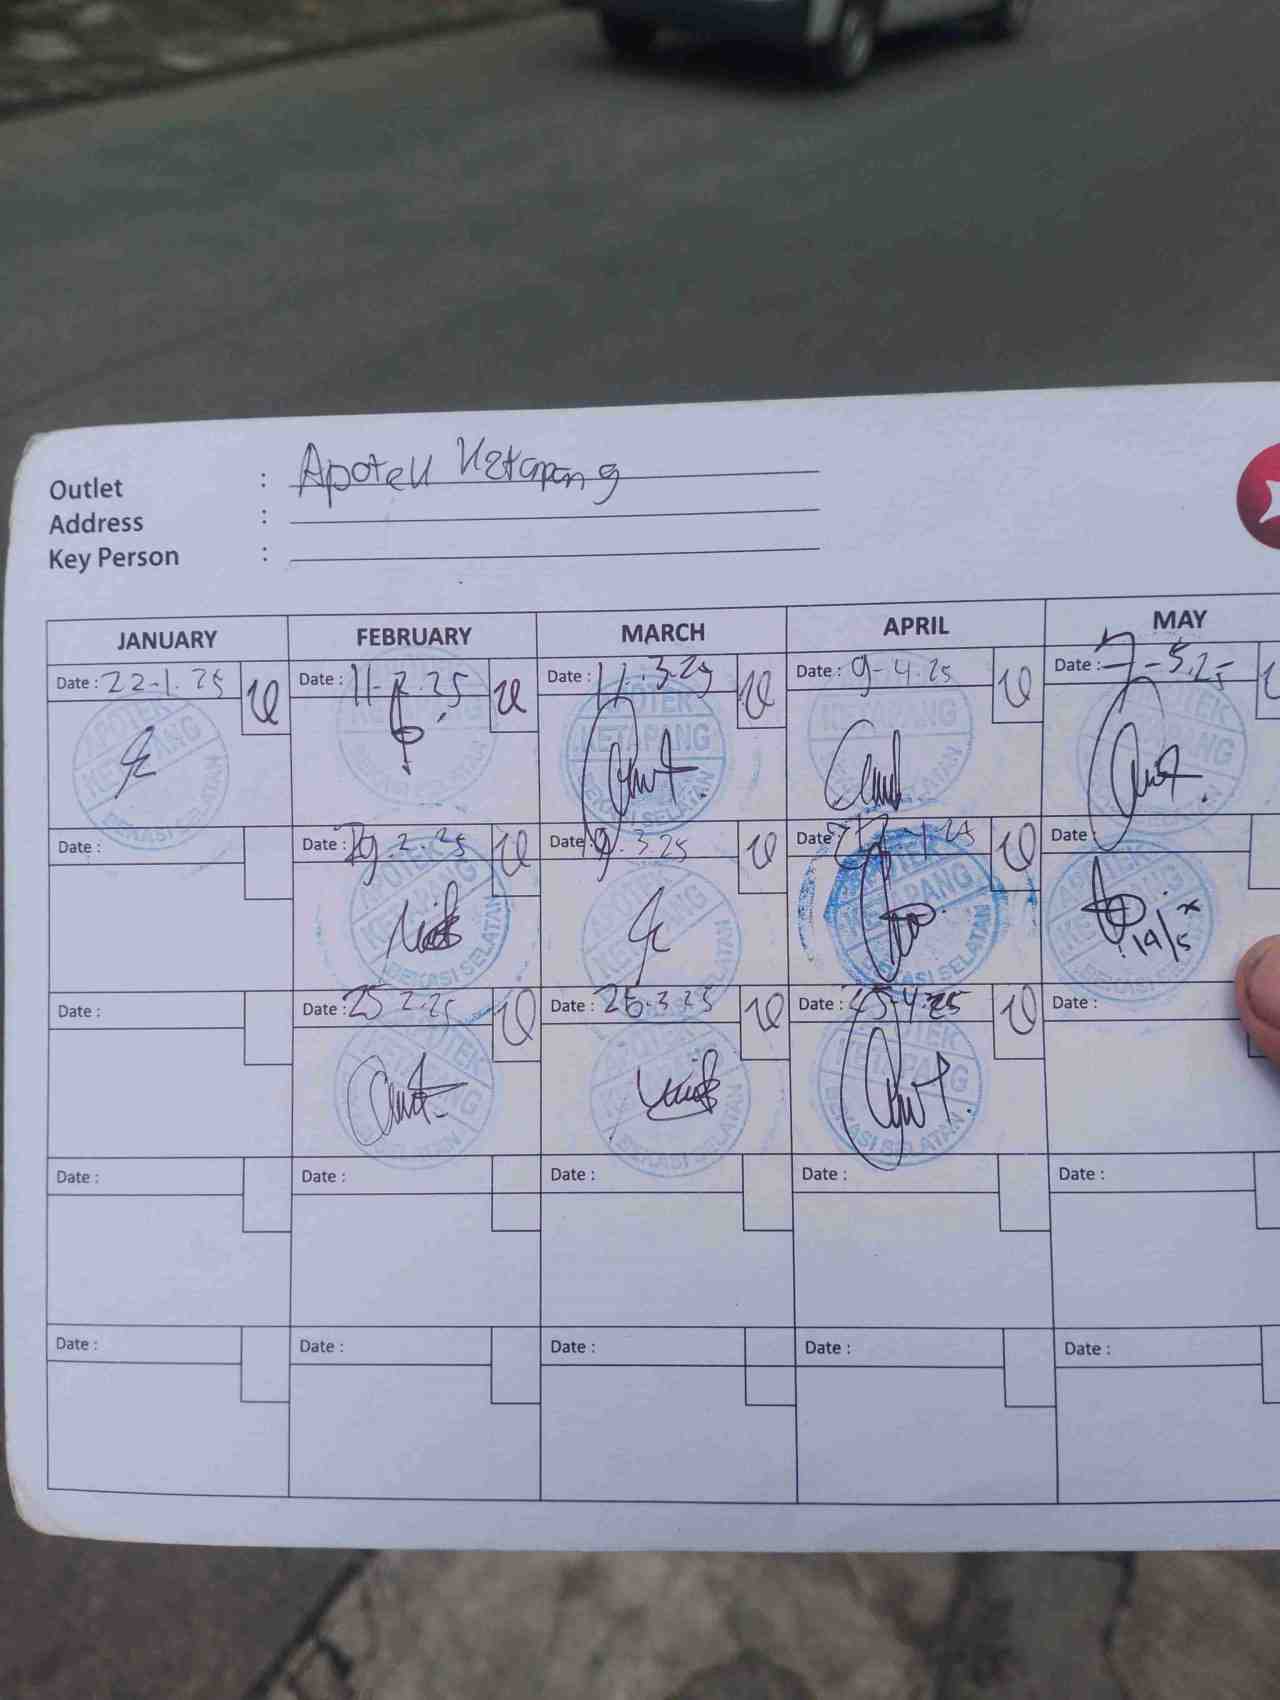 Outlet : Apotek Ketapang
Address :
Key Person :
JANUARY FEBRUARY MARCH APRIL MAY
Date : 22-1.25 Date : 11-2.25 Date : 11.3.25 Date : 9-4.25 Date : 7-5.25
APOTEK KETAPANG BEKASI SELATAN
APOTEK KETAPANG BEKASI SELATAN
APOTEK KETAPANG BEKASI SELATAN
KETAPANG BEKASI SELATAN
APOTEK KETAPANG BEKASI SELATAN
Date : Date : 19.2.25 Date : 19.3.25 Date : Date :
APOTEK KETAPANG BEKASI SELATAN
APOTEK KETAPANG BEKASI SELATAN
APOTEK KETAPANG BEKASI SELATAN
APOTEK KETAPANG BEKASI SELATAN
14/5
Date : Date : 25 2.25 Date : 26.3.25 Date : 25-4.25 Date :
APOTEK KETAPANG BEKASI SELATAN
APOTEK KETAPANG BEKASI SELATAN
BEKASI SELATAN
Date : Date : Date : Date : Date :
Date : Date : Date : Date : Date :